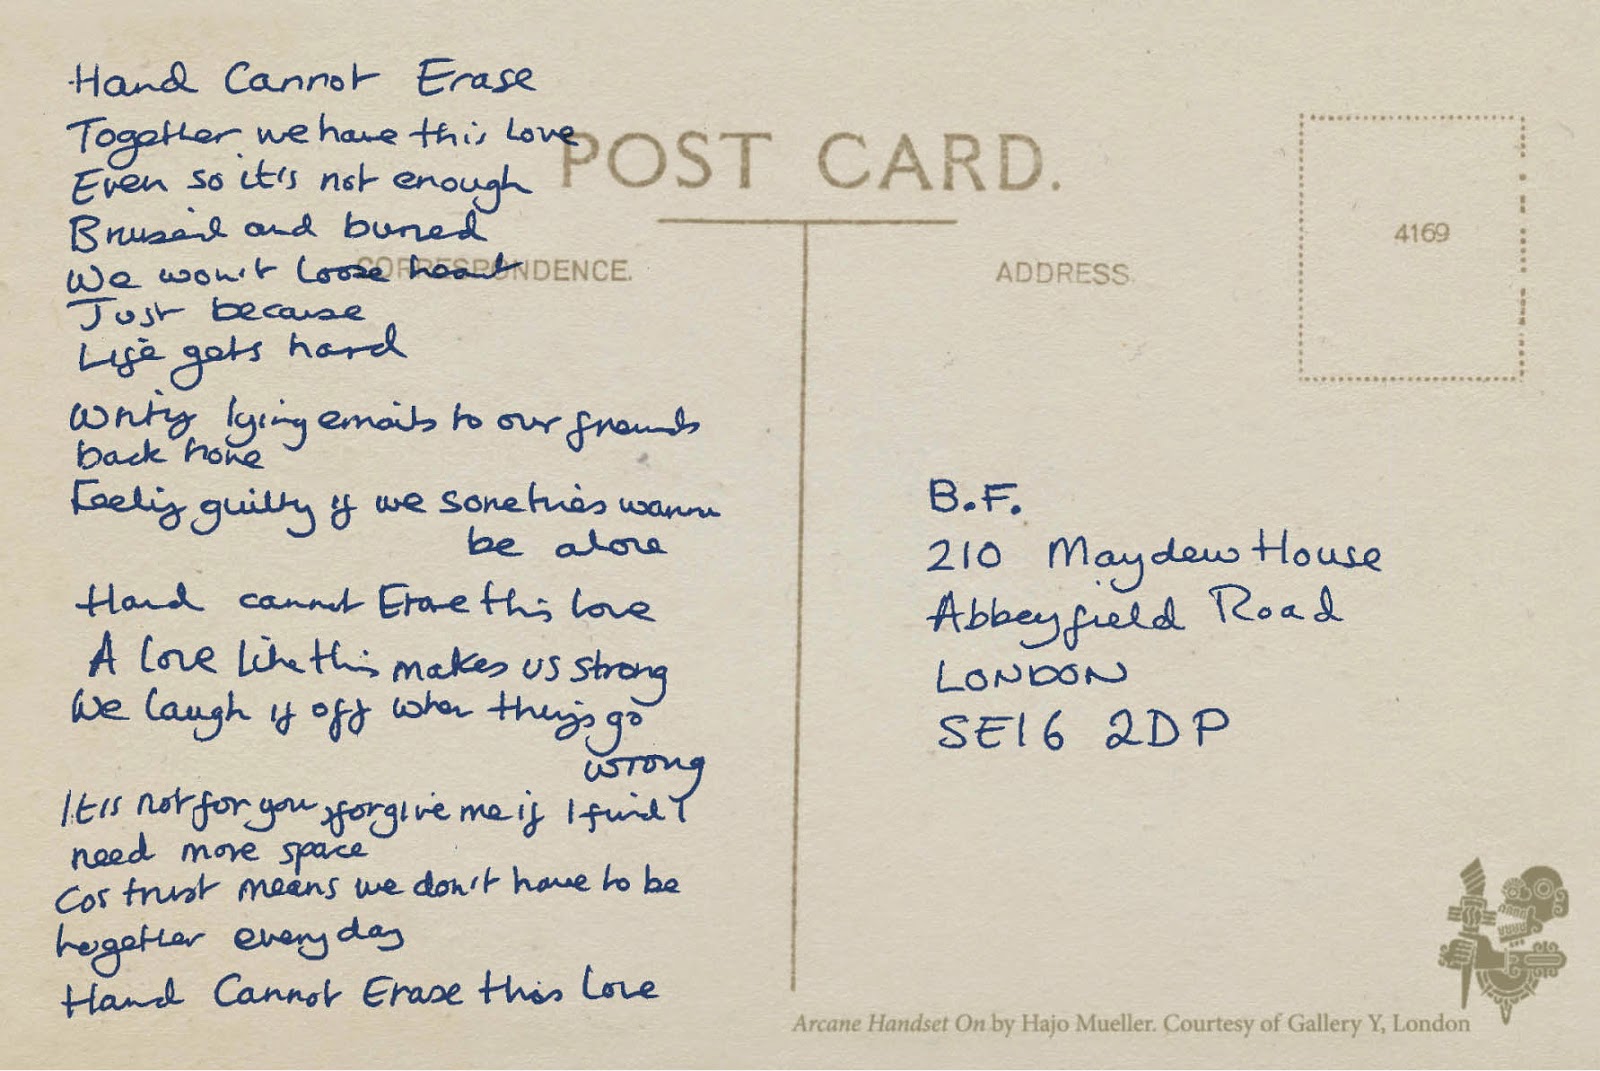 Hand Cannot Erase
Together we have this love
Even so it's not enough
Bruised and burned
We won't loose heart
Just because
Life gets hard
Writing lying emails to our friends
back home
Feeling guilty if we sometimes wanna
be alone
Hand cannot Erase this love
A love like this makes us strong
We laugh if off when things go
wrong
It is not for you, forgive me if I find I
need more space
Cos trust means we don't have to be
together every day
Hand Cannot Erase this love
POST CARD.
CORRESPONDENCE.
ADDRESS.
4169
B.F.
210 Maydew House
Abbeyfield Road
LONDON
SE16 2DP
Arcane Handset On by Hajo Mueller. Courtesy of Gallery Y, London